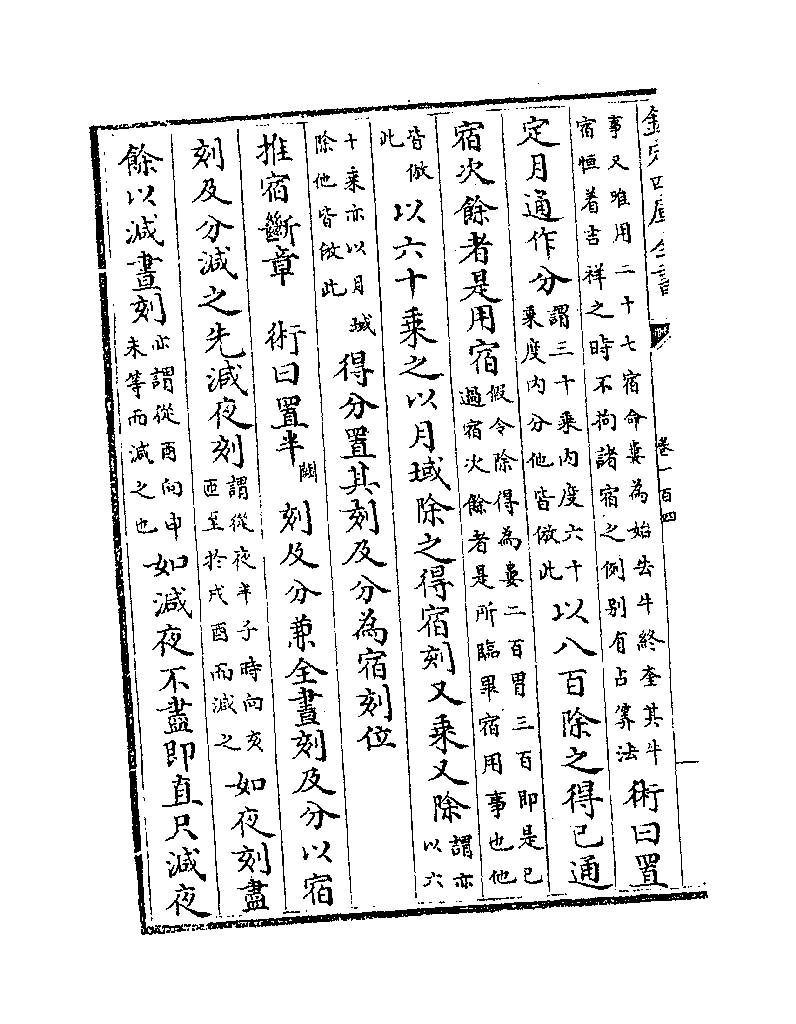 欽定四庫全書
卷一百四
事又唯用二十七宿命婁為始去牛終奎其牛
宿恒着吉祥之時不拘諸宿之例别有占筭法
術曰置
定月通作分
謂三十乘內度六十
乘度內分他皆倣此
以八百除之得已通
宿次餘者是用宿
假令除得為婁二百胃三百即是已
過宿次餘者是所臨畢宿用事也他
皆倣
此
以六十乘之以月域除之得宿刻又乘又除
謂亦
以六
十乘亦以月域
除他皆倣此
得分置其刻及分為宿刻位
推宿斷章　術曰置半
闕
刻及分兼全晝刻及分以宿
刻及分減之先減夜刻
謂從夜半子時向亥
亟至於戌酉而減之
如夜刻盡
餘以減晝刻
亦謂從酉向申
未等而減之也
如減夜不盡即直只減夜